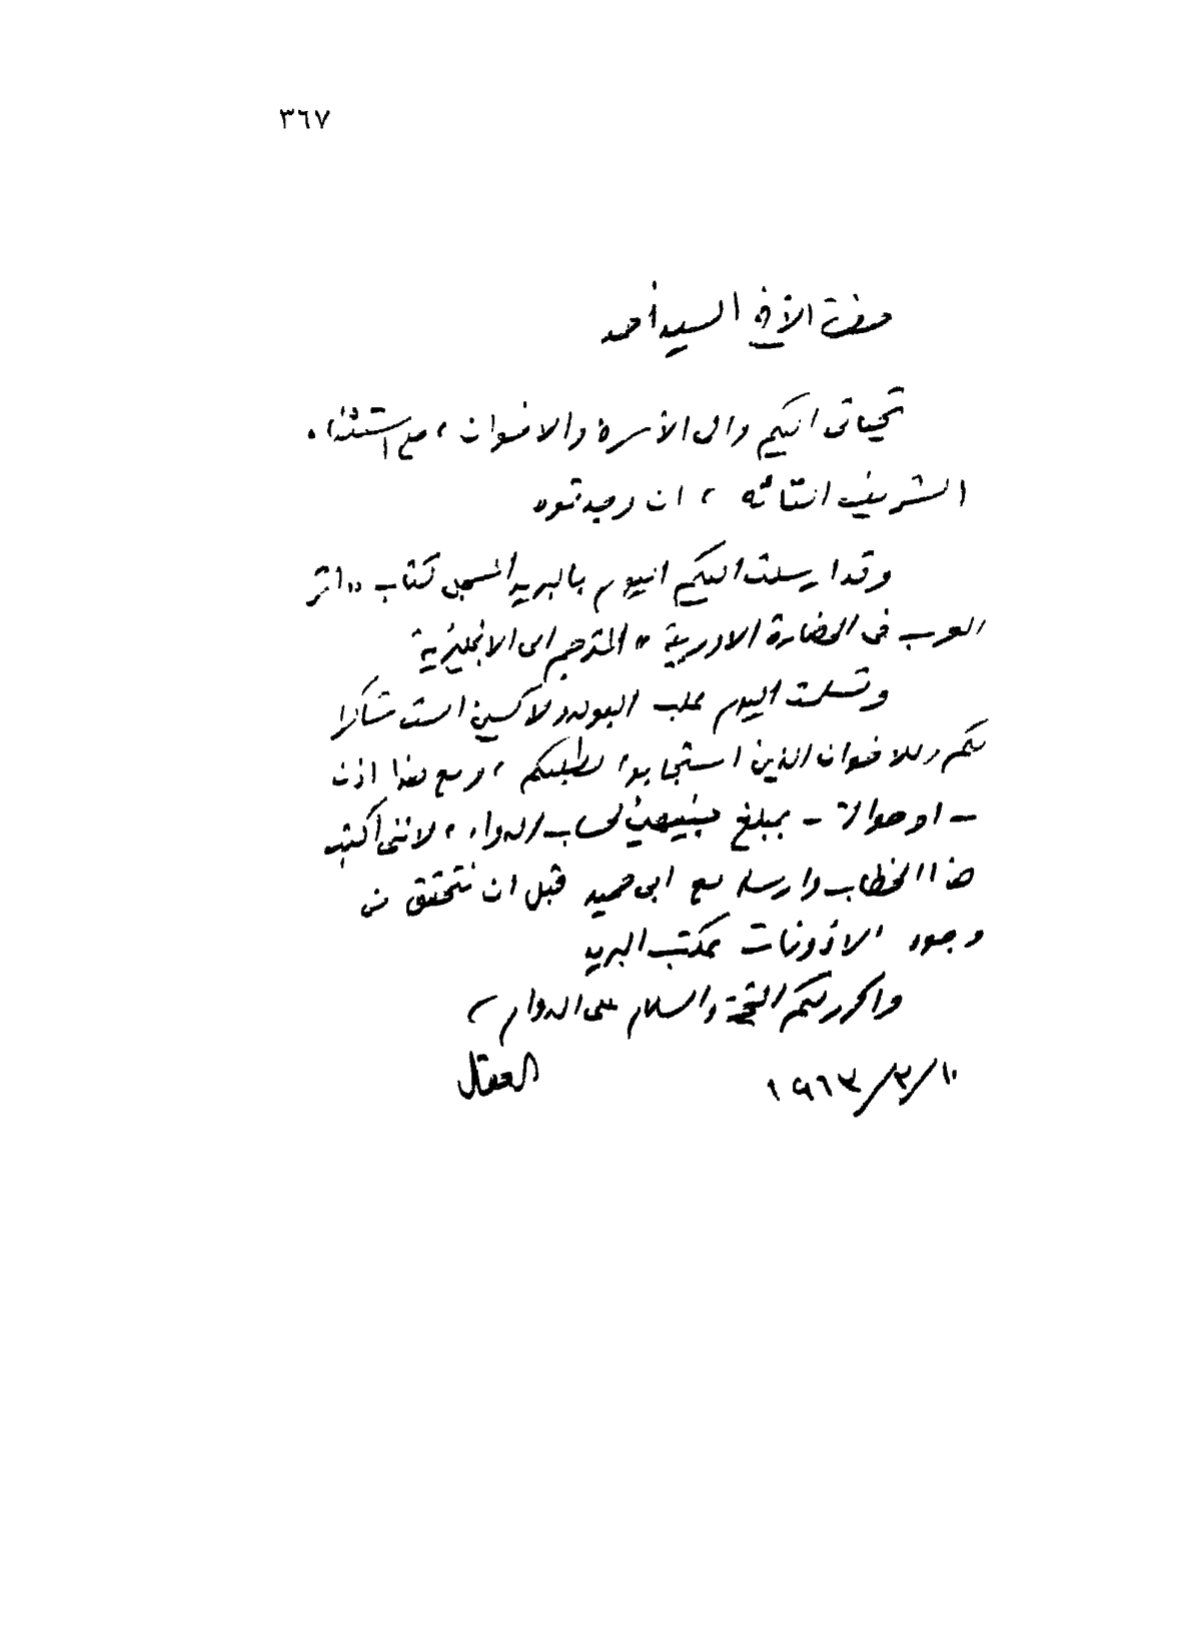 ٣٦٧
حضرة الأخ السيد أحمد
تحياتى اليكم والى الأسرة والاخوان ، مع استثناء
الشريف التائه ، ان وجدتموه
وقد ارسلت اليكم اليوم بالبريد المسجل كتاب « اثر
العرب فى الحضارة الاوربية » المترجم الى الانجليزية
وتسلمت اليوم علب الست شاكرا
لكم وللاخوان الذين استجابوا لطلبكم ، ومع هذا اذن
– او حوالة – بمبلغ جنيهين لحساب الدواء ، لاننى أكتب
هذا الخطاب وارسله مع ابى حميد قبل ان نتحقق من
وجود الاذونات بمكتب البريد
واكرر لكم التحية والسلام على الدوام ،
العقاد
١٠/٣/١٩٦٣